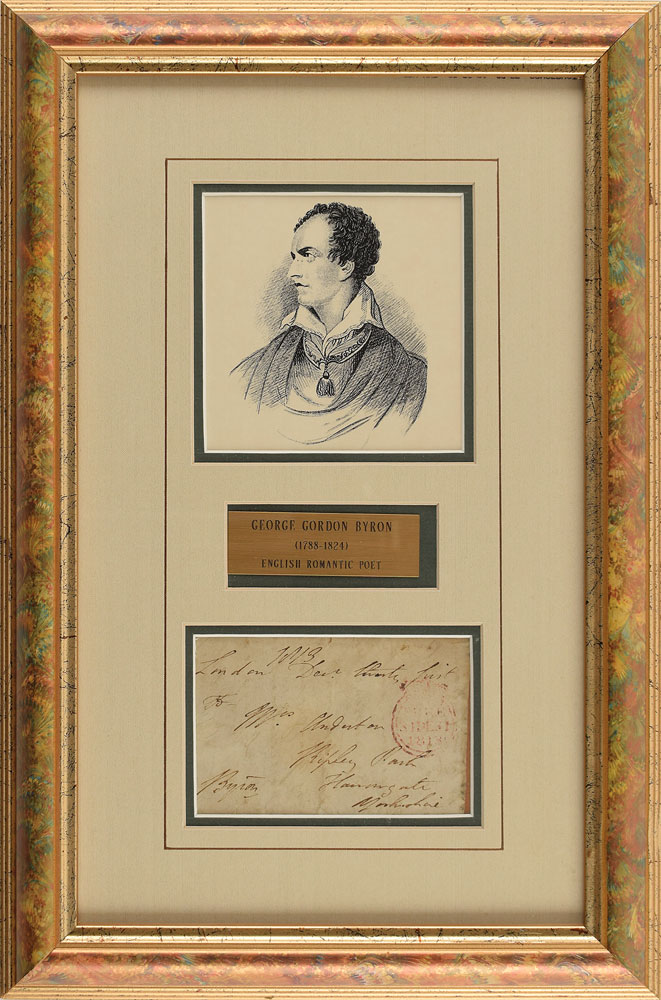 GEORGE GORDON BYRON
(1788-1824)
ENGLISH ROMANTIC POET
1813
London Decr thirty first
To
Mrs Anderton
Ripley Park
Byron Harrowgate
Yorkshire
1813